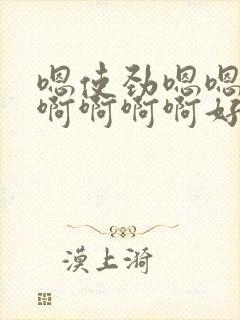 嗯使劲嗯嗯
啊啊啊啊好
漠上漪